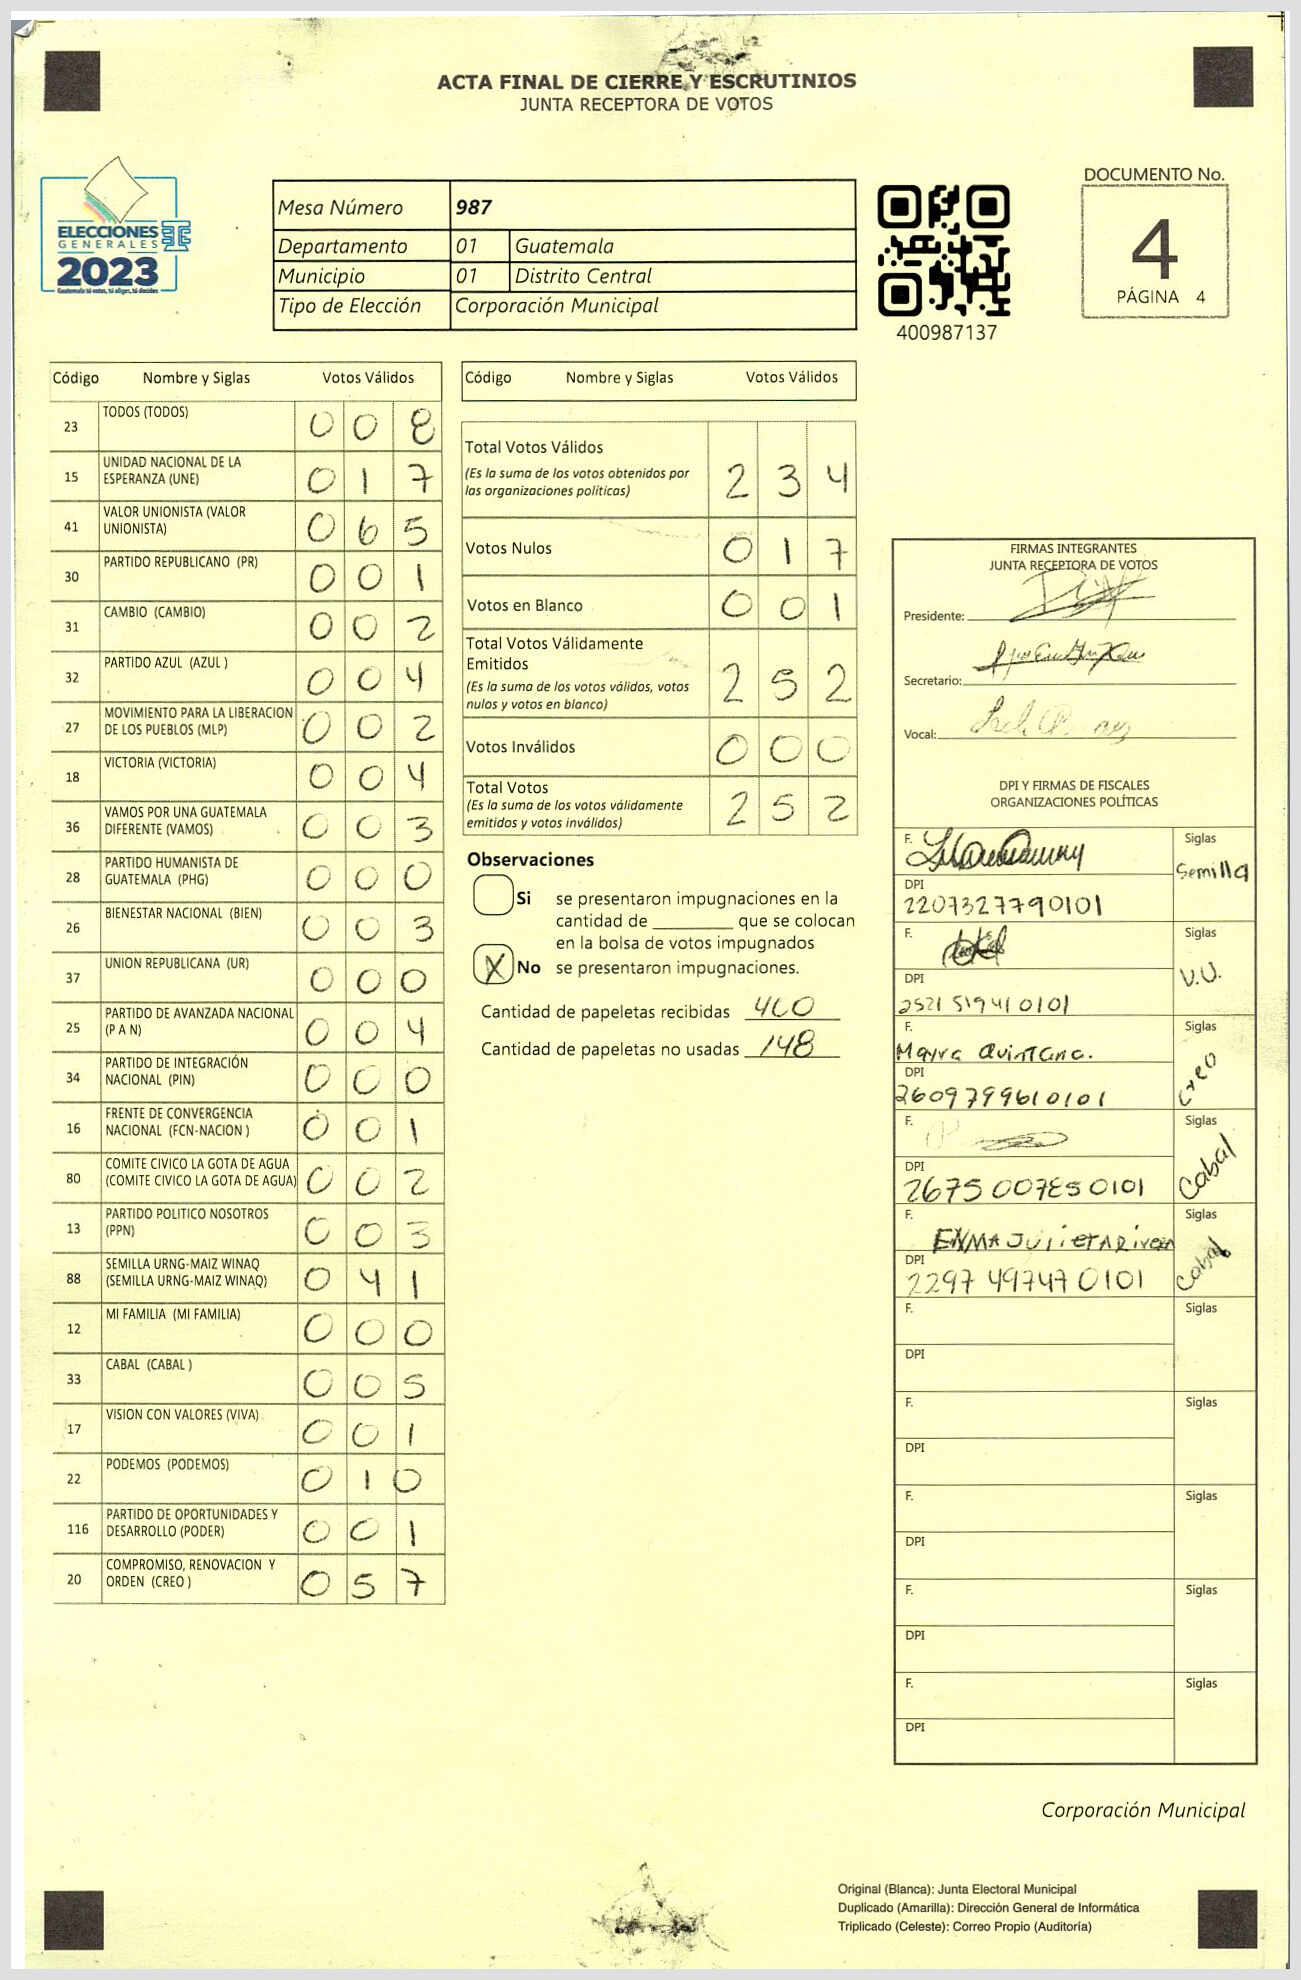 ACTA FINAL DE CIERRE Y ESCRUTINIOS
JUNTA RECEPTORA DE VOTOS
ELECCIONES
GENERALES
2023
Guatemala tú votas, tú eliges, tú decides
Mesa Número 987
Departamento 01 Guatemala
Municipio 01 Distrito Central
Tipo de Elección Corporación Municipal
400987137
DOCUMENTO No.
4
PÁGINA 4
Código Nombre y Siglas Votos Válidos
23 TODOS (TODOS) 0 0 8
15 UNIDAD NACIONAL DE LA
ESPERANZA (UNE) 0 1 7
41 VALOR UNIONISTA (VALOR
UNIONISTA) 0 6 5
30 PARTIDO REPUBLICANO (PR) 0 0 1
31 CAMBIO (CAMBIO) 0 0 2
32 PARTIDO AZUL (AZUL ) 0 0 4
27 MOVIMIENTO PARA LA LIBERACION
DE LOS PUEBLOS (MLP) 0 0 2
18 VICTORIA (VICTORIA) 0 0 4
36 VAMOS POR UNA GUATEMALA
DIFERENTE (VAMOS) 0 0 3
28 PARTIDO HUMANISTA DE
GUATEMALA (PHG) 0 0 0
26 BIENESTAR NACIONAL (BIEN) 0 0 3
37 UNION REPUBLICANA (UR) 0 0 0
25 PARTIDO DE AVANZADA NACIONAL
(P A N) 0 0 4
34 PARTIDO DE INTEGRACIÓN
NACIONAL (PIN) 0 0 0
16 FRENTE DE CONVERGENCIA
NACIONAL (FCN-NACION ) 0 0 1
80 COMITE CIVICO LA GOTA DE AGUA
(COMITE CIVICO LA GOTA DE AGUA) 0 0 2
13 PARTIDO POLITICO NOSOTROS
(PPN) 0 0 3
88 SEMILLA URNG-MAIZ WINAQ
(SEMILLA URNG-MAIZ WINAQ) 0 4 1
12 MI FAMILIA (MI FAMILIA) 0 0 0
33 CABAL (CABAL ) 0 0 5
17 VISION CON VALORES (VIVA) 0 0 1
22 PODEMOS (PODEMOS) 0 1 0
116 PARTIDO DE OPORTUNIDADES Y
DESARROLLO (PODER) 0 0 1
20 COMPROMISO, RENOVACION Y
ORDEN (CREO ) 0 5 7
Código Nombre y Siglas Votos Válidos
Total Votos Válidos
(Es la suma de los votos obtenidos por
las organizaciones políticas) 2 3 4
Votos Nulos 0 1 7
Votos en Blanco 0 0 1
Total Votos Válidamente
Emitidos
(Es la suma de los votos válidos, votos
nulos y votos en blanco) 2 5 2
Votos Inválidos 0 0 0
Total Votos
(Es la suma de los votos válidamente
emitidos y votos inválidos) 2 5 2
Observaciones
Si se presentaron impugnaciones en la
cantidad de ________ que se colocan
en la bolsa de votos impugnados
X No se presentaron impugnaciones.
Cantidad de papeletas recibidas 400
Cantidad de papeletas no usadas 148
FIRMAS INTEGRANTES
JUNTA RECEPTORA DE VOTOS
Presidente:
Secretario:
Vocal:
DPI Y FIRMAS DE FISCALES
ORGANIZACIONES POLÍTICAS
F. Siglas
Semilla
DPI
2207327790101
F. Siglas
V.U.
DPI
2521 51941 0101
F. Siglas
Mayra Quintana. Creo
DPI
2609799610101
F. Siglas
Cabal
DPI
2675 00785 0101
F. Siglas
ENMA JULIETA RIVERA Cabal
DPI
2297 49747 0101
F. Siglas
DPI
F. Siglas
DPI
F. Siglas
DPI
F. Siglas
DPI
F. Siglas
DPI
Corporación Municipal
Original (Blanca): Junta Electoral Municipal
Duplicado (Amarilla): Dirección General de Informática
Triplicado (Celeste): Correo Propio (Auditoría)